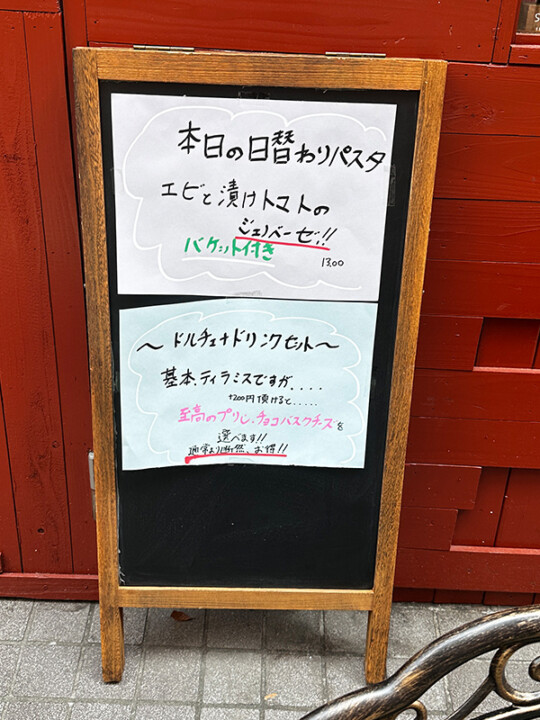 本日の日替わりパスタ
エビと漬けトマトの
ジェノベーゼ!!
バケット付き
1300
～ドルチェ+ドリンクセット～
基本、ティラミスですが....
+200円頂けると.....
至高のプリン、チョコバスクチーズを
選べます!!
通常より断然、お得!!